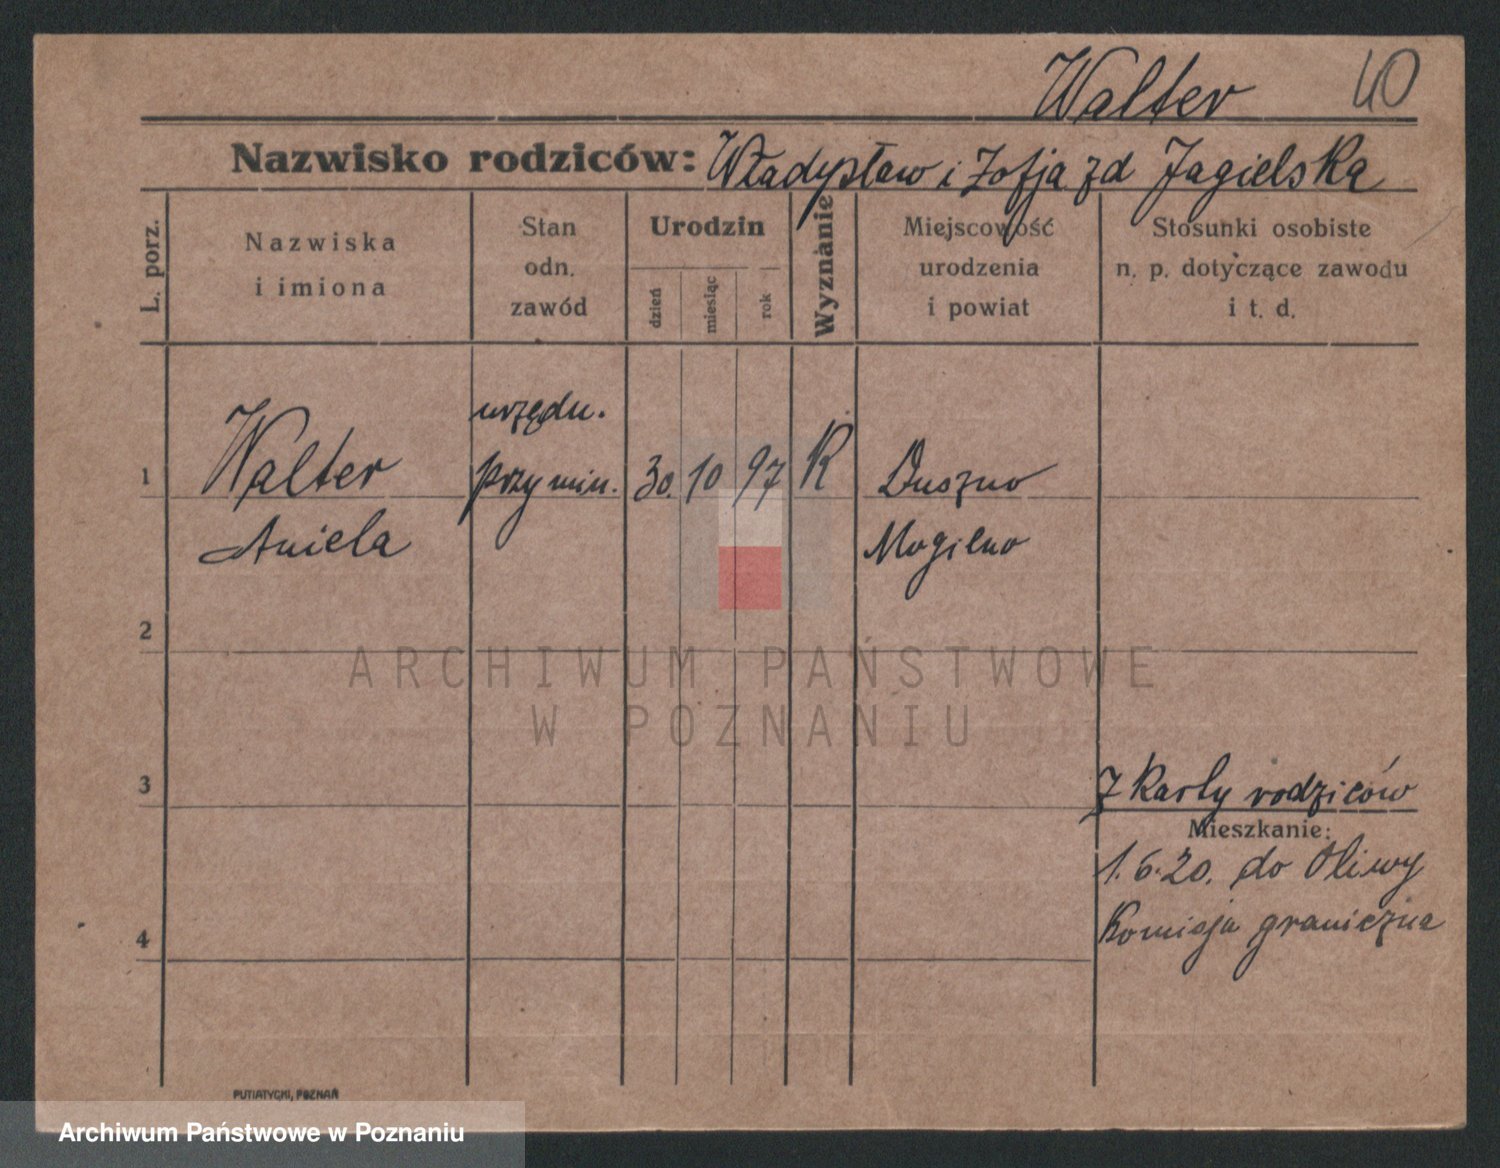 Walter 40
Nazwisko rodziców: Władysław i Zofja zd Jagielska
L. porz.
Nazwiska
i imiona
Stan
odn.
zawód
Urodzin
dzień
miesiąc
rok
Wyznanie
Miejscowość
urodzenia
i powiat
Stosunki osobiste
n. p. dotyczące zawodu
i t. d.
urzędn.
1 Walter przy min. 30. 10 97 K Duszno
Aniela Mogilno
2
ARCHIWUM PAŃSTWOWE
W POZNANIU
3 Z Karty rodziców
Mieszkanie:
1.6.20. do Oliwy
4 Komisja graniczna
PUTIATYCKI, POZNAŃ
Archiwum Państwowe w Poznaniu